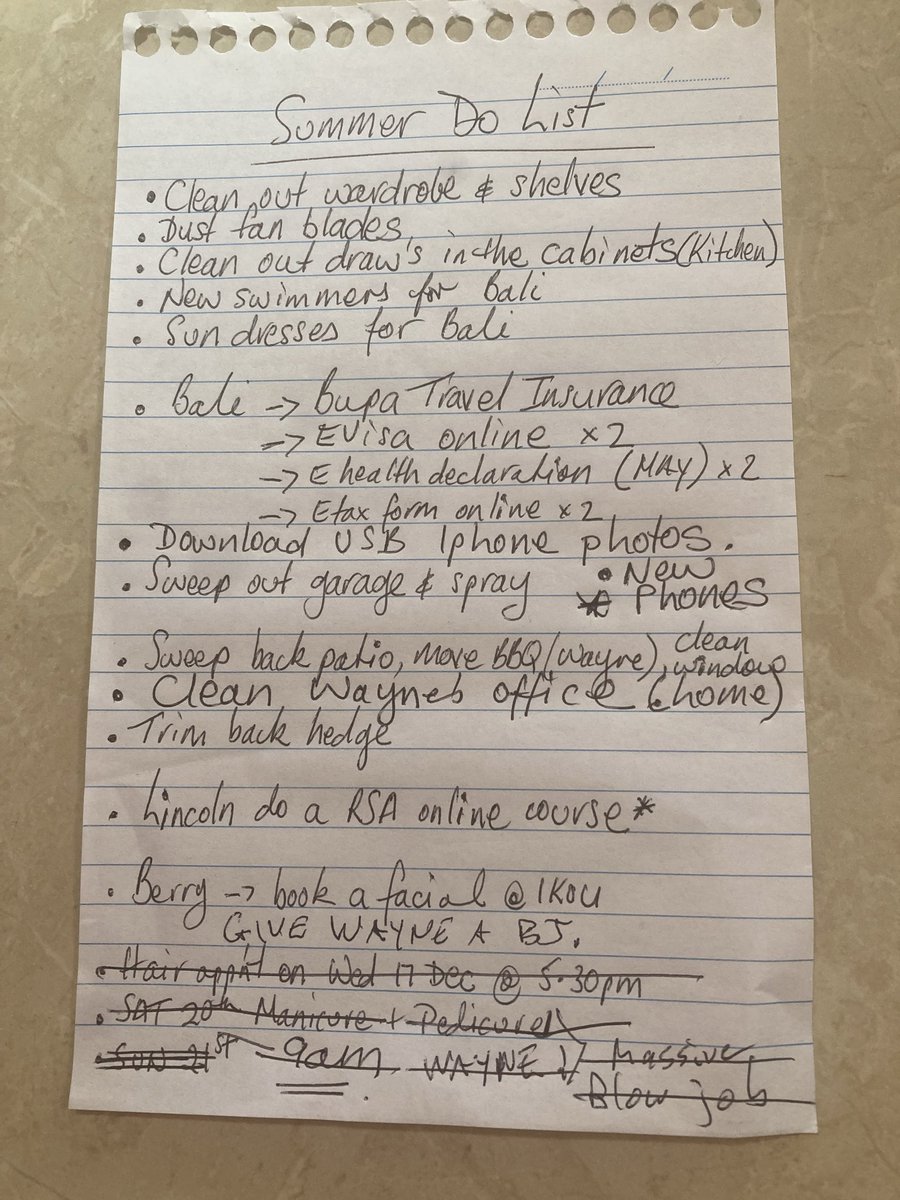 Summer Do List
• Clean out wardrobe & shelves
• Dust fan blades.
• Clean out draw's in the cabinets (Kitchen)
• New swimmers for Bali
• Sun dresses for Bali
• Bali -> Bupa Travel Insurance
-> EVisa online x2
-> E health declaration (MAY) x2
-> Etax form online x2
• Download USB Iphone photos.
• Sweep out garage & spray
• New
Phones
• Sweep back patio, move BBQ (Wayne), clean
windows
• Clean Wayne's office (home)
• Trim back hedge
• Lincoln do a RSA online course*
• Berry -> book a facial @ IKOU
GIVE WAYNE A BJ.
• Hair app't on Wed 17 Dec @ 5.30pm
• SAT 20th Manicure + Pedicure
• SUN 21st - 9am WAYNE Massive
Blow job